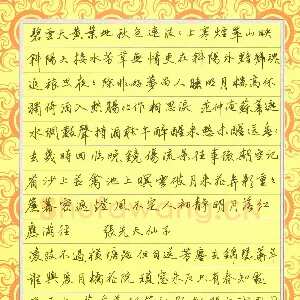 碧云天黄叶地秋色连波波上寒烟翠山映
斜阳天接水芳草无情更在斜阳外黯乡魂
追旅思夜夜除非好梦留人睡明月楼高休
独倚酒入愁肠化作相思泪 范仲淹苏幕遮
水调数声持酒听午醉醒来愁未醒送春
去几时回临晚镜伤流景往事后期空记
省沙上并禽池上暝云破月来花弄影重重
帘幕密遮灯风不定人初静明日落红
应满径 张先天仙子
凌波不过横塘路但目送芳尘去锦瑟华年
谁与度月桥花院琐窗朱户只有春知处